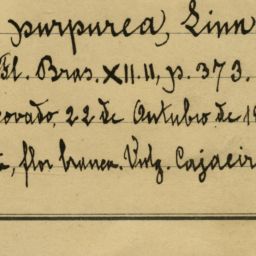 purpurea, Linn
Fl. Bras. XII. II, p. 373.
covado, 22 de Outubro de 19
, flor branca. Vulg. Cajaeir